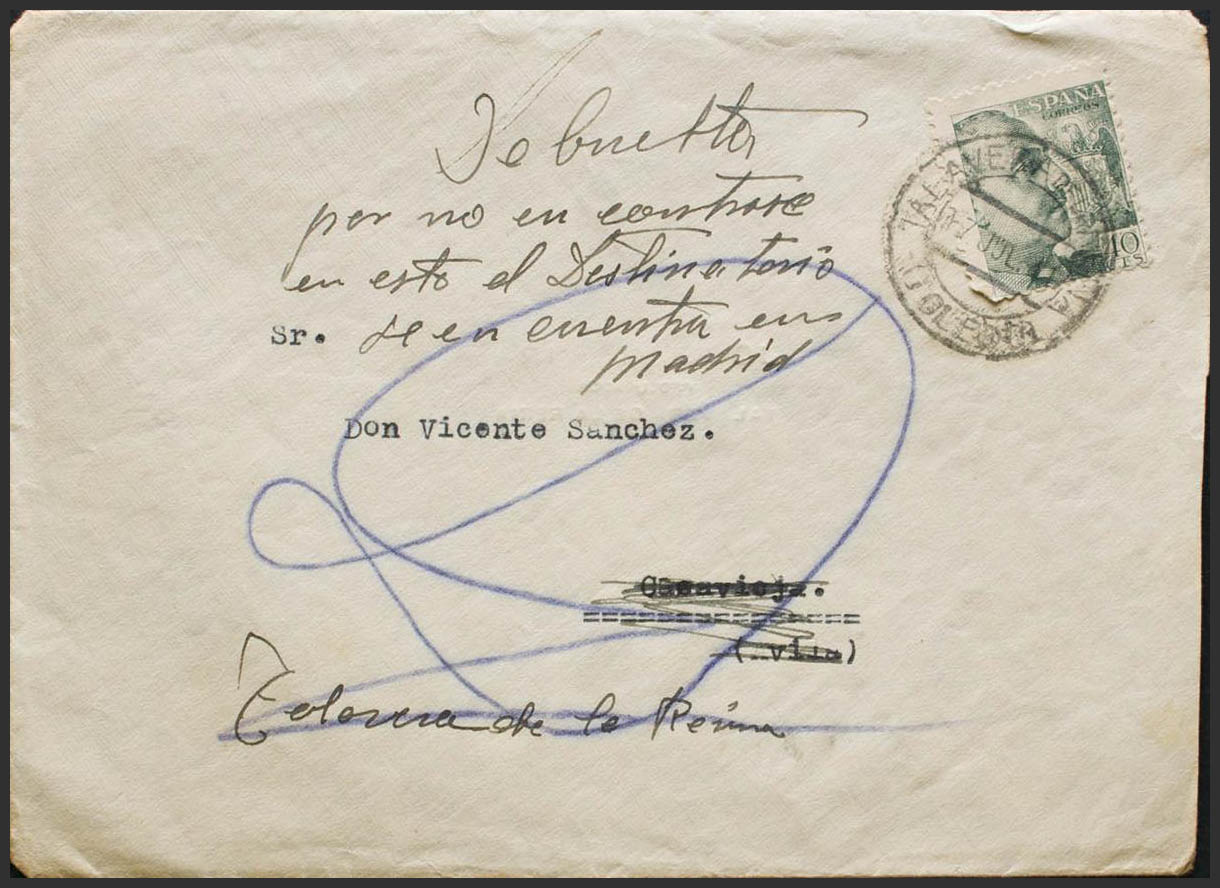 Debuetta
por no en contrase
en esto el Destinatario
Sr. se en cuentra en
Madrid
Don Vicente Sanchez.
Casavieja.
(Avila)
Talavera de la Reina
ESPAÑA
CORREOS
10
CTS
TALAVERA DE LA REINA
JUL
TOLEDO